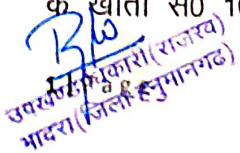 के खाता स० 1
उपखण्ड अधिकारी (राजस्व)
भादरा (जिला हनुमानगढ)